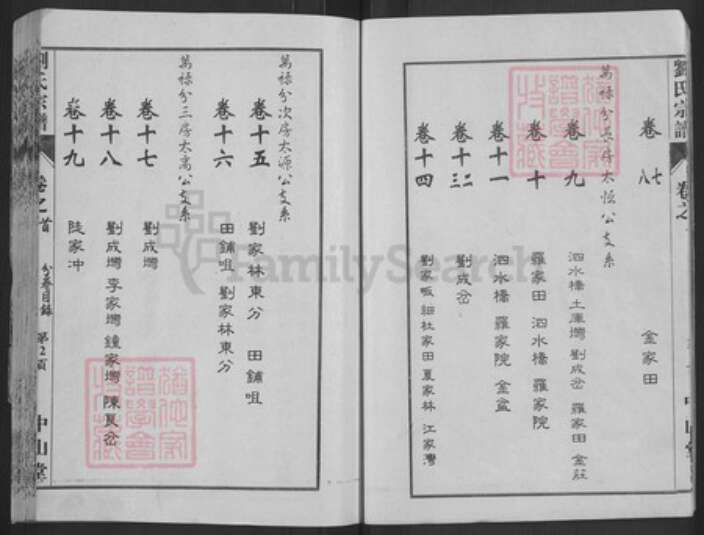 劉氏宗譜
卷之
卷七八
金家田
萬祿分長房太恒公支系
卷九
泗水橋 土庫塆 劉成岔 羅家田 金莊
卷十
羅家田 泗水橋 羅家院
卷十一
泗水橋 羅家院 金盆
卷十二三
劉成岔
卷十四
劉家畈 細杜家田 夏家林 江家灣
萬祿分次房太源公支系
卷十五
劉家林東分 田鋪咀
卷十六
田鋪咀 劉家林東分
萬祿分三房太高公支系
卷十七
劉成塆
卷十八
劉成塆 李家塆 鐘家塆 陳夏岔
卷十九
陡家冲
劉氏宗譜
卷之首
分卷目錄
第2頁
中山堂
FamilySearch